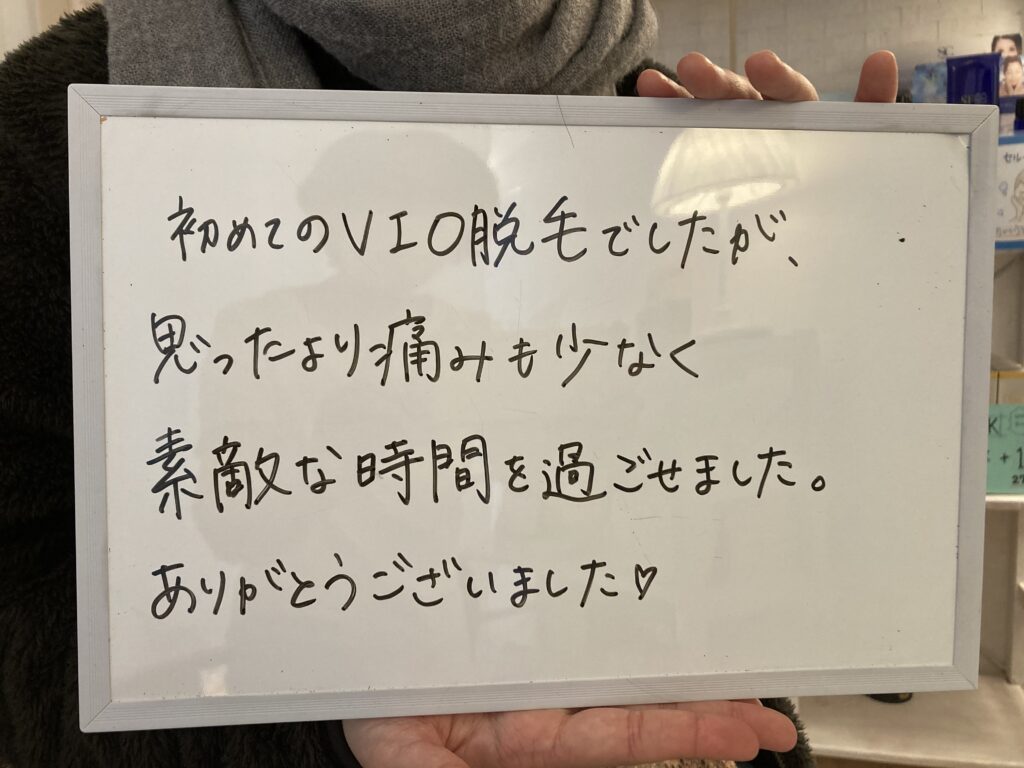 初めてのVIO脱毛でしたが、
思ったより痛みも少なく
素敵な時間を過ごせました。
ありがとうございました♡
セル
K
+1
27